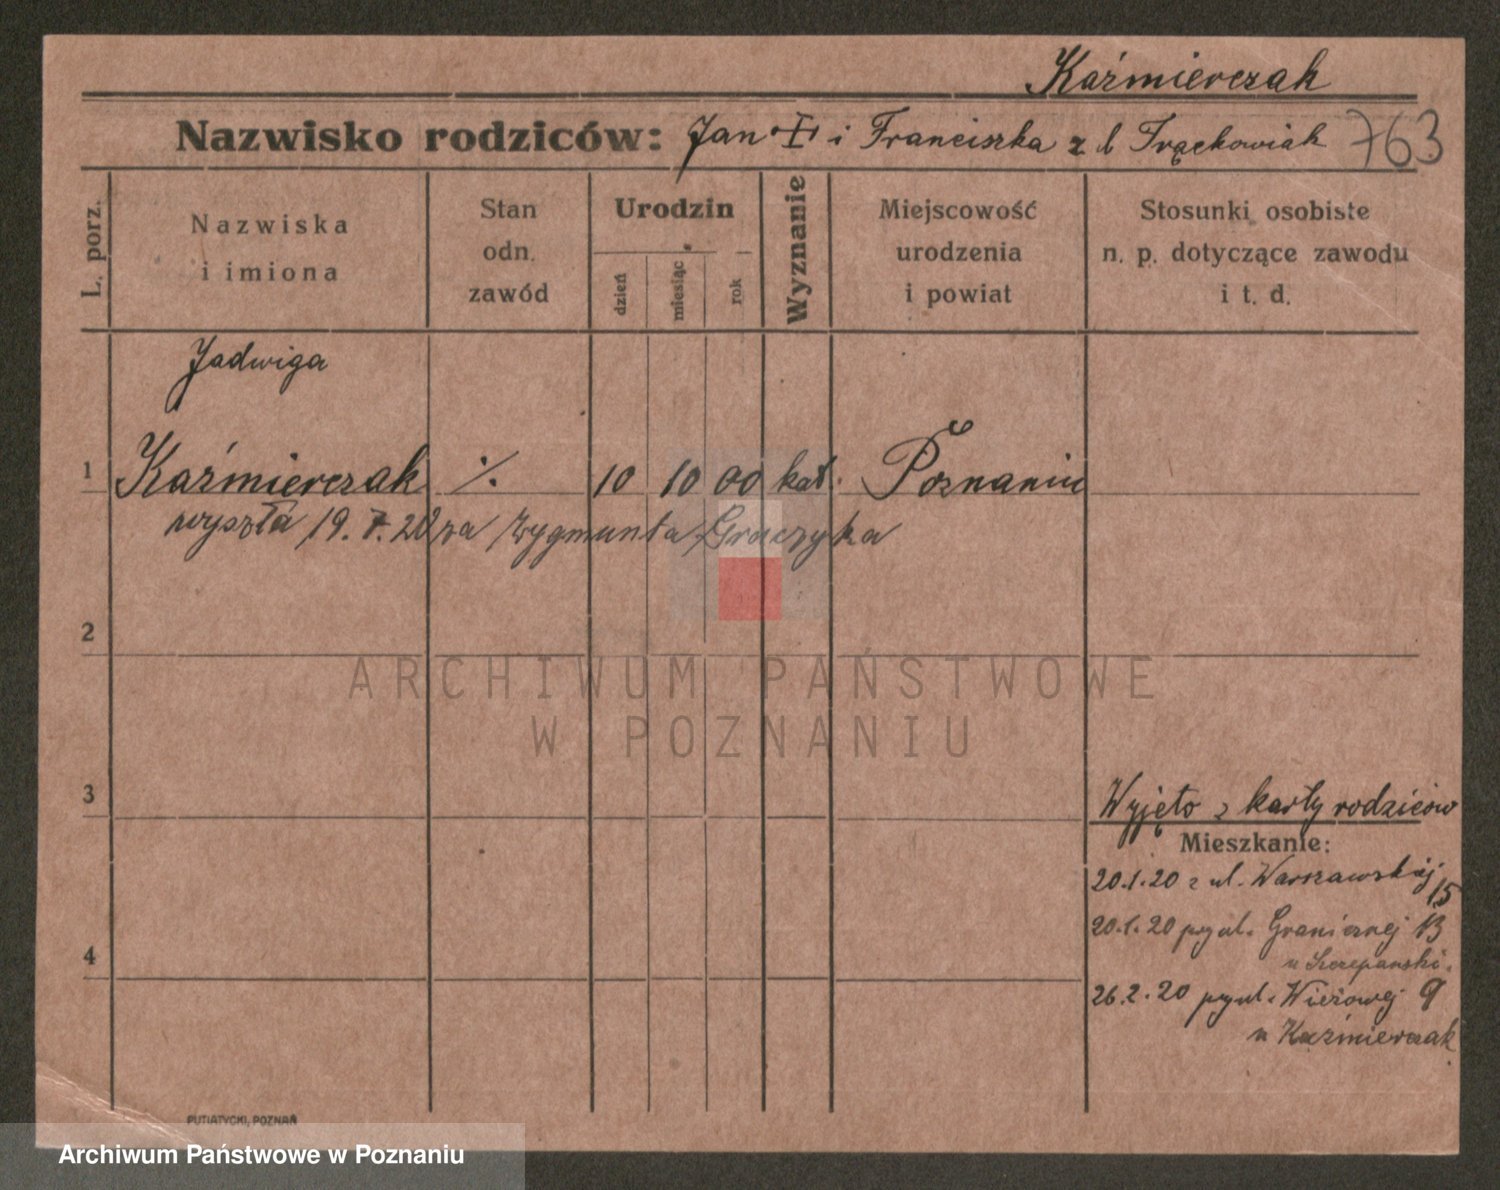 Kaźmierczak
Nazwisko rodziców: Jan I i Franciszka z d Frąckowiak 763
L. porz.
Nazwiska
i imiona
Stan
odn.
zawód
Urodzin
dzień
miesiąc
rok
Wyznanie
Miejscowość
urodzenia
i powiat
Stosunki osobiste
n. p. dotyczące zawodu
i t. d.
Jadwiga
1 Kaźmierczak ·/. 10 10 00 kat. Poznaniu
wyszła 19. 7. 20 za Zygmunta Graczyka
2
ARCHIWUM PAŃSTWOWE
W POZNANIU
3
Wyjęto z karty rodziców
Mieszkanie:
20.1.20 z ul. Warszawskiej 15
20.1.20 pzy ul. Granicznej 13
u Szczepanski.
4
26.2.20 pzy ul. Wieżowej 9
u Kaźmierczak
PUTIATYCKI, POZNAŃ
Archiwum Państwowe w Poznaniu